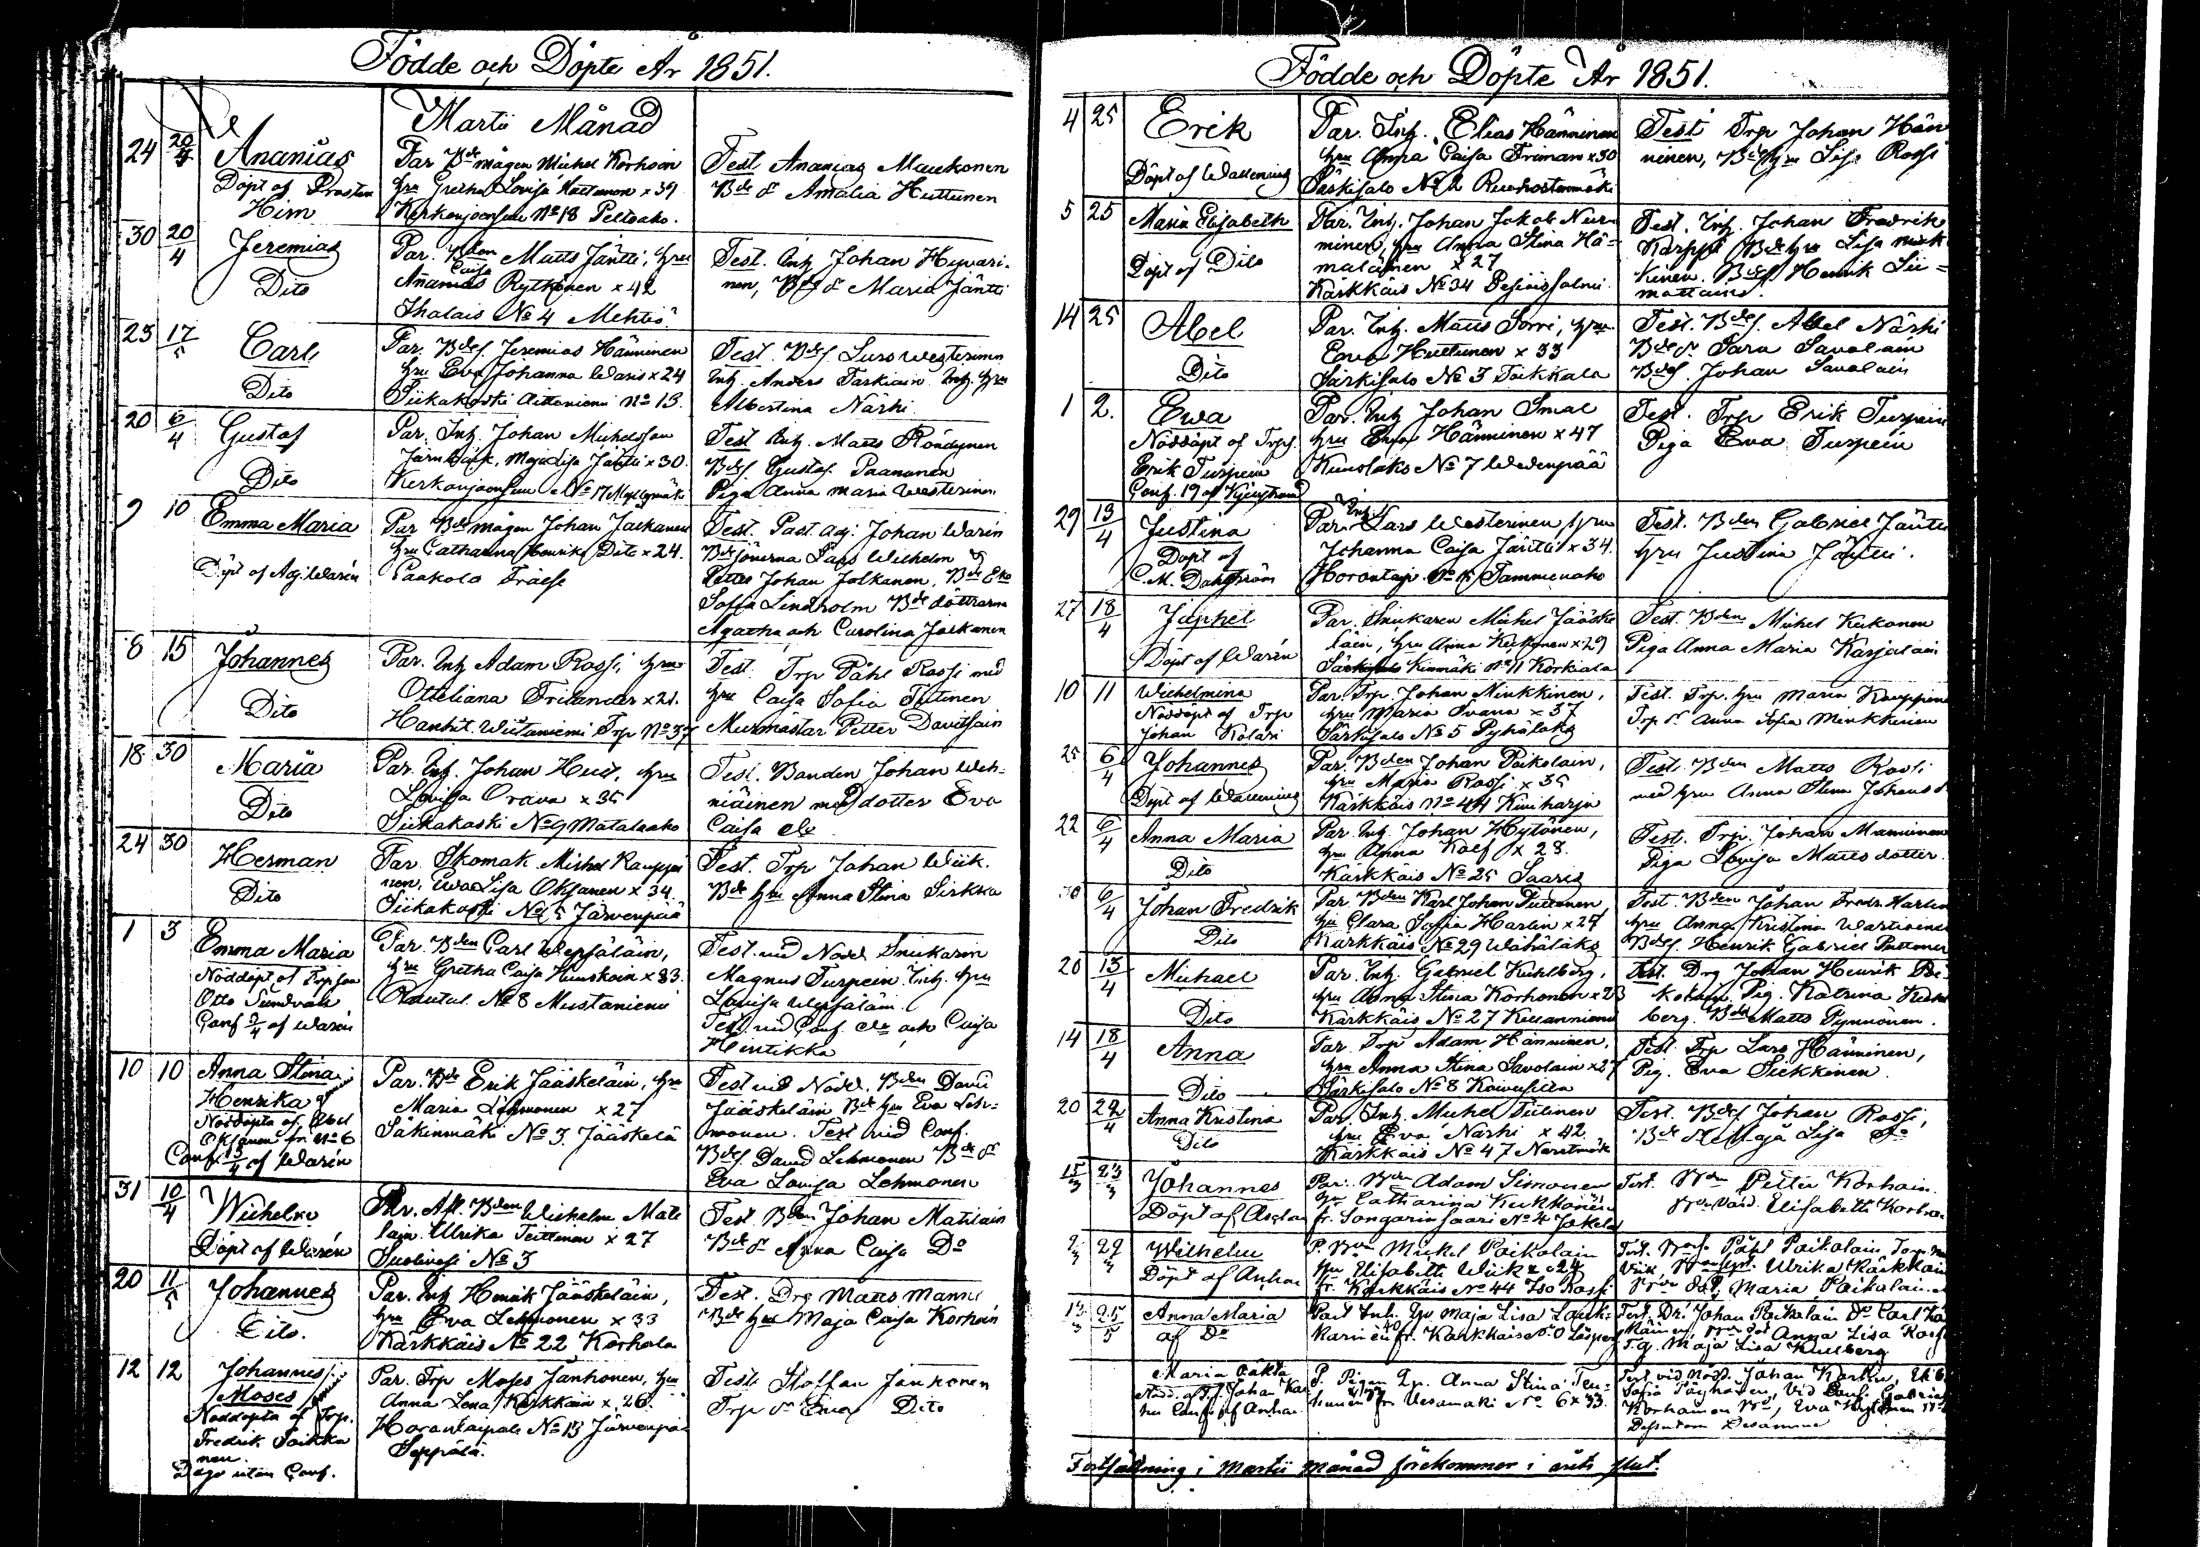 Födde och Döpte År 1851.
Martii Månad
24 20/4 Ananias
Döpt af Prosten
Par Bdemågen Michel Korhoin
hru Gretha Lovisa Hattunen x 39
Kerkonjoensuu No 18 Peltoaho.
Test. Ananias Maukonen
Bde dr Amalia Huttunen
30 20/4 Jeremias
Dito
Par. Bden Matts Jäntti, hru
Caisa
Rytkönen x 42
Ihalais No 4 Mehtiö
Test. Inh Johan Hyväri-
nen, Bde dr Maria Jäntti
23 17/5 Carl
Dito
Par. Bdes. Jeremias Hänninen
hru Eva Johanna Waris x 24
Siikakoski Aittoniemi No 13.
Test. Bdes. Lars Westerinen
Inh. Anders Tarkiain Inh. hru
Albertina Närhi
20 6/4 Gustaf
Dito
Par. Inh. Johan Michelsson
Maja Lisa Jäntti x 30.
Kerkonjoensuu No 17
Test. Inh. Matts Röndynen
Bdes Gustaf Paananen
Piga Anna Maria Westerinen
9 10 Emma Maria
Döpt af Adj. Warén
Par Bdemågen Johan Jalkanen
hru Catharina Henrika Dito x 24.
Paakola Frälse
Test. Past. adj. Johan Warén
Bdesönerna Lars Wilhelm &
Petter Johan Jalkanen, Bde
Sofia Lindholm Bde döttrarna
Agatha och Carolina Jalkanen
8 15 Johannes
Dito
Par. Inh Adam Rossi, hru
Otteliana Frilander x 21.
Wiitaniemi Trp No 37
Test. Trp Påhl Rossi med
hru Caisa Sofia Tiitinen
Murmästar Petter Davidsain
18 30 Maria
Dito
Par. Inh. Johan Huit, hru
Lovisa Orava x 35
Siikakoski No 9 Matalaaho
Test. Bonden Johan Weh-
niäinen med dotter Eva
Caisa do
24 30 Herman
Dito
Par. Skomak Michel Kauppi
nen, Eva Lisa Oksanen x 34.
Siikakoski No 5 Järvenpää
Test. Trp Johan Wiik.
Bde hru Anna Stina Sirkka
1 3 Emma Maria
Nöddöpt af Trp son
Otto Sundvall
Conf 2/4 af Warén
Par. Bden Carl Wepsäläin,
hru Gretha Caisa Huuskoin x 33.
Rautal. No 8 Mustaniemi
Test. vid Nödd. Snickaren
Magnus Turpein Inh. hru
Lovisa Wepsäläin.
Test. vid Conf. do och Caisa
Hintikka
10 10 Anna Stina
Henrika
Nöddöpta af Abel
Oksanen fr No 6
Conf. 13/4 af Warén
Par. Bde Erik Jääskeläin, hru
Maria Lehmonen x 27
Säkinmäki No 3. Jääskelä
Test vid Nödd. Bden David
Jääskeläin Bde hru Eva Leh-
monen. Test vid Conf.
Bdes. David Lehmonen Bde dr
Eva Lovisa Lehmonen
31 10/4 Wilhelm
Döpt af Warén
Par. Afl. Bden Wilhelm Mati
lain Ulrika Teittinen x 27
Suolivesi No 3
Test. Bden Johan Matilain
Bde dr Anna Caisa Do
20 11/5 Johannes
Dito.
Par. Inh Henrik Jääskeläin,
hru Eva Lehmonen x 33
Kärkkäis No 22 Korhola
Test. Drg Matts Manni
Bde hru Maja Caisa Korhoin
12 12 Johannes
Moses
Nöddöpta af Trp.
Fredrik Toikka
nen.
utan Conf.
Par. Trp Moses Jänhonen, hru
Anna Lena Kärkkäin x 26.
Horontaipale No 13 Järvenpää
Seppälä.
Test. Staffan Jänhonen
Trp dr Eva Dito
Födde och Döpte År 1851.
4 25 Erik
Döpt af Wallenius
Par. Inh. Elias Hänninen
hru Anna Caisa Friman x 30
Särkisalo No 2
Test Trp Johan Hän
ninen, Bde hru Lisa Rossi
5 25 Maria Elisabeth
Döpt af Dito
Par. Inh. Johan Jakob Nur-
minen, hru Anna Stina Hä-
mäläinen x 27
Kärkkäis No 34
Test. Inh. Johan Fredrik
Karppi Bde hru Lisa
Bdes Henrik Lii-
mattainen.
14 25 Abel
Dito
Par. Inh. Matts Sorri, hru
Eva Huttunen x 33
Särkisalo No 3 Toikkala
Test. Bdes. Abel Närhi
Bde dr Sara Savolain
Bdes. Johan Savolain
1 2. Ewa
Nöddöpt af Trps.
Erik Turpein
Conf. 19
Par. Inh Johan Smal
hru Eva Hänninen x 47
Kuuslaks No 7 Wedenpää
Test. Trp Erik Turpein
Piga Eva Turpein
29 13/4 Justina
Döpt af
C. M. Dahlström
Par. Inh Lars Westerinen hru
Johanna Caisa Jäntti x 34.
Horontaip. No 15 Tammenaho
Test. Bden Gabriel Jäntti
hru Justina Jäntti.
27 18/4 Japhet
Döpt af Warén
Par. Snickaren Michel Jääske
läin, hru Anna Kukkonen x 29
Kinmäki No 11 Korkiala
Test. Bden Michel Kukonen
Piga Anna Maria Karjalain
10 11 Wilhelmina
Nöddöpt af Trp
Johan Kolari
Par. Trp. Johan Minkkinen,
hru Maria Ivana x 37
Särkisalo No 5 Pyhälaks
Test. Trp. hru Maria Kauppinen
Trp dr Anna Sofia Minkkinen
25 6/4 Johannes
Döpt af Wallenius
Par. Bden Johan Poikolain,
hru Maria Rossi x 35
Kärkkäis No 44 Kiviharju
Test. Bden Matts Rossi
med hru Anna Stina Johansd.
22 6/4 Anna Maria
Dito
Par. Inh. Johan Hytönen,
hru Anna Kolf x 28.
Kärkkäis No 25 Saaris
Test. Trp. Johan Manninen
Piga Lovisa Matts dotter.
30 6/4 Johan Fredrik
Dito
Par. Bden Karl Johan Puttonen
hru Clara Sofia Harlin x 27
Kärkkäis No 29 Wähälaks
Test. Bden Johan Fredr. Harlin
hru Anna Kristina Wartiainen
Bdes. Henrik Gabriel Puttonen
20 13/4 Michael
Dito
Par. Inh. Gabriel Kuhlberg,
hru Anna Stina Korhonen x 23
Kärkkäis No 27 Killanniemi
Test. Drg Johan Henrik Poi-
kolain. Pig. Katrina Kuhl
berg. Bdes Matts Pynnönen.
14 18/4 Anna
Dito
Par. Trp Adam Hänninen,
hru Anna Stina Savolain x 27
Särkisalo No 8 Koivusilta
Test. Trp Lars Hänninen,
Pig. Eva Siekkinen.
20 22/4 Anna Kristina
Dito
Par. Inh. Michel Tiitinen
hru Eva Närhi x 42.
Kärkkäis No 47
Test. Bdes Johan Rossi,
Bde dr Maja Lisa Do
15/3 23/3 Johannes
Döpt af
Par. Bden Adam Simonen
hru Catharina Kukkonen
fr. Songarinsaari No 4 Jokela
Test. Bden Petter Korhoin.
Elisabeth Korhoin
2/3 29/3 Wilhelm
Döpt af
P. Bden Mickel Poikolain
hru Elisabeth Wiik x 24
fr. Kärkkäis No 44 Iso Rossi
Test. Bdes. Påhl Poikolain,
Wiik, Ulrika Kärkkäin
Maria Poikolain
13/3 25/5 Anna Maria
af Do
Maja Lisa Lauk-
fr. Kärkkäis
Test. Dr. Johan Poikolain Do Carl
Anna Lisa Rossi
Maja Lisa Kullberg
Maria
P. Pigan Anna Stina
fr. Vesamäki No 6 x 33.
Test vid Nödd. Johan
Sofia vid Conf. Gabriel
Korhonen Eva Hytönen
Fortsättning i Martii månad förekommer i årets slut.